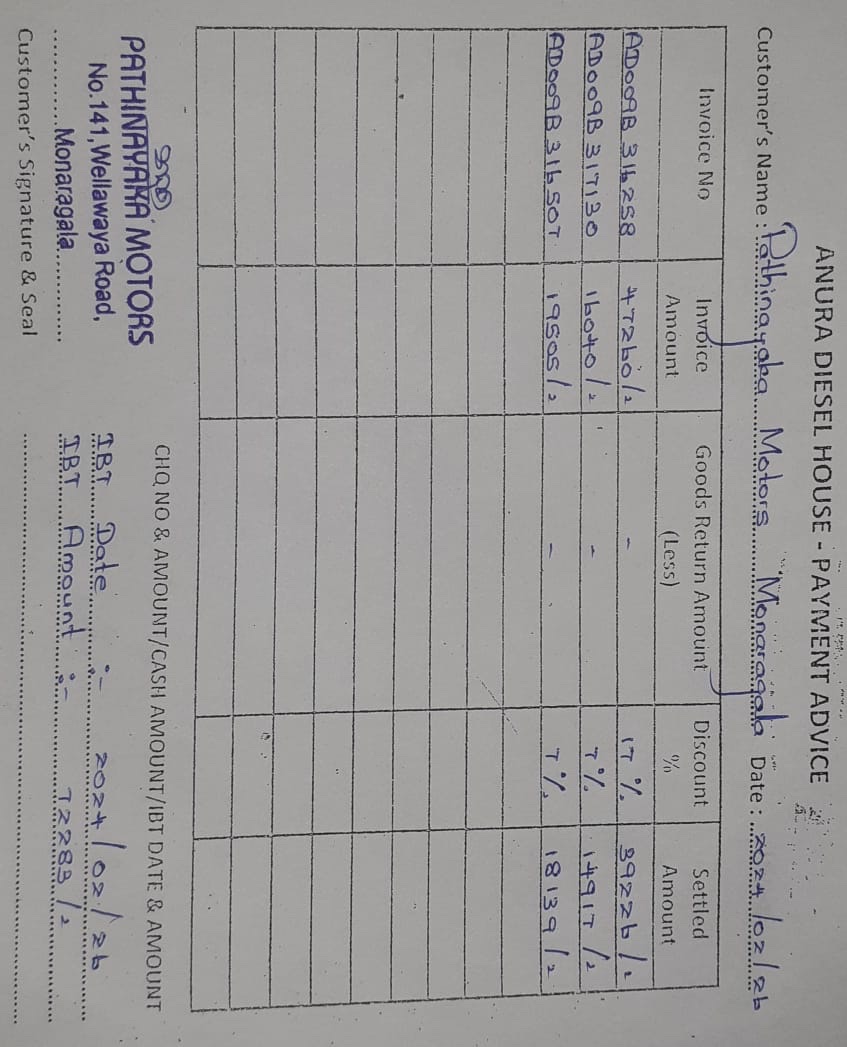 ANURA DIESEL HOUSE - PAYMENT ADVICE
Customer's Name : Pathinayaka Motors Monaragala Date : 2024/02/26
Invoice No Invoice Amount Goods Return Amount (Less) Discount % Settled Amount
AD009B316258 47260/= - 17% 39226/=
AD009B317130 16040/= - 7% 14917/=
AD009B316507 19505/= - 7% 18139/=
CHQ NO & AMOUNT/CASH AMOUNT/IBT DATE & AMOUNT
PATHINAYAKA MOTORS
No.141, Wellawaya Road,
Monaragala
Customer's Signature & Seal
IBT Date :- 2024/02/26
IBT Amount :- 72283/=